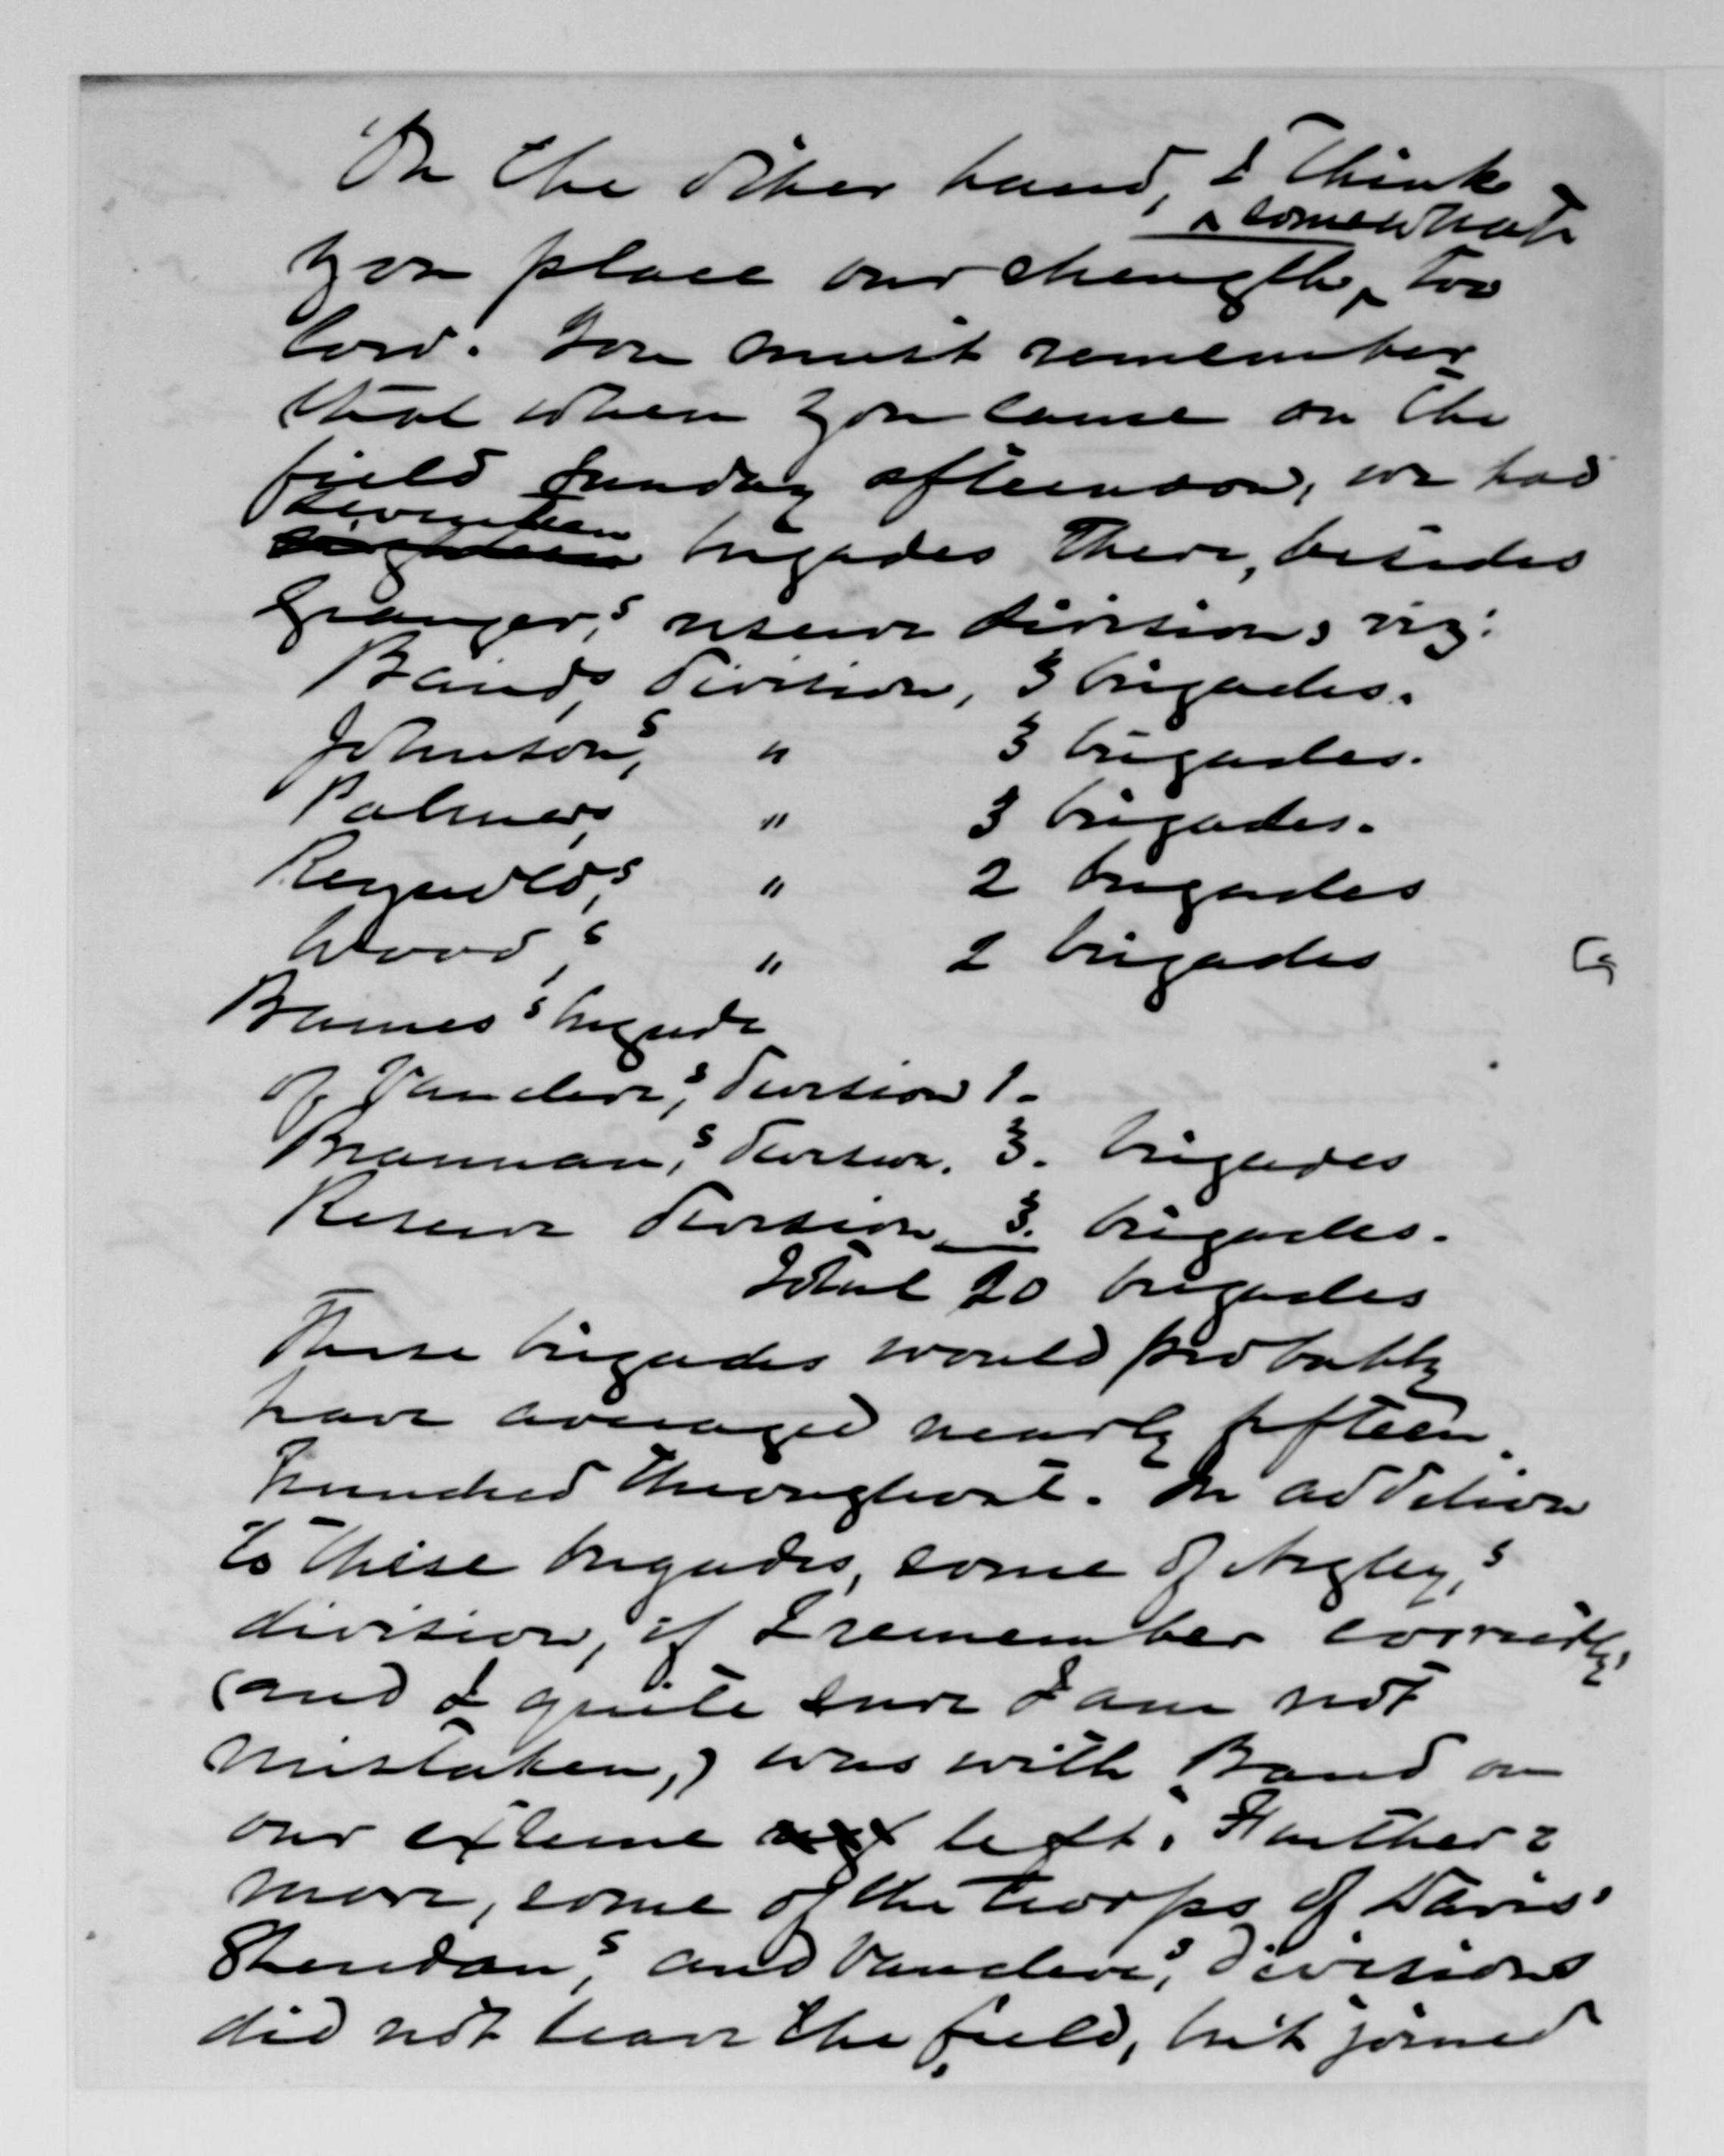 On the other hand, I think
somewhat
you place our strength, too
low. You must remember
that when you came on the
field Sunday afternoon, we had
seventeen
brigades there, besides
Granger's reserve division, viz:
Baird's division, 3 brigades.
Johnson's " 3 brigades.
Palmer's " 3 brigades.
Reynold's " 2 brigades
Wood's " 2 brigades
Barnes's brigade
of Vancleve's division 1.
Brannan's division. 3. brigades
Reserve division 3. brigades.
Total 20 brigades
These brigades would probably
have averaged nearly fifteen
hundred throughout. In addition
to these brigades, some of Negley's
division, if I remember correctly,
(and I quite sure I am not
mistaken,) was with Baird on
our extreme left. Further=
more, some of the troops of Davis'
Sheridan's, and Vancleve's, divisions
did not leave the field, but joined